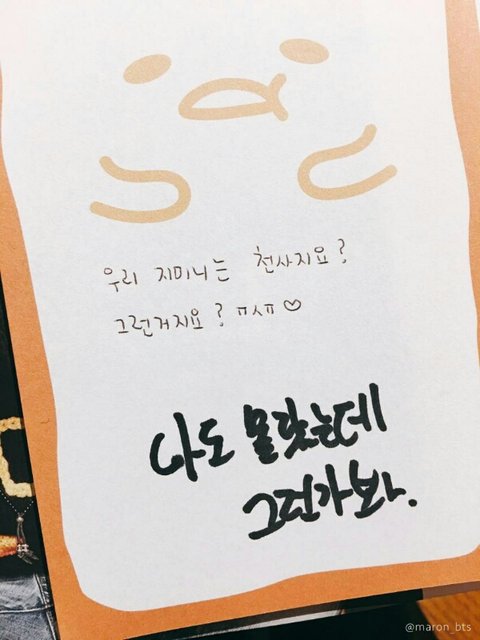 우리 지미니는 천사지요?
그런거지요? ㅠㅅㅠ♡
나도 몰랐는데
그런가 봐.
@maron_bts